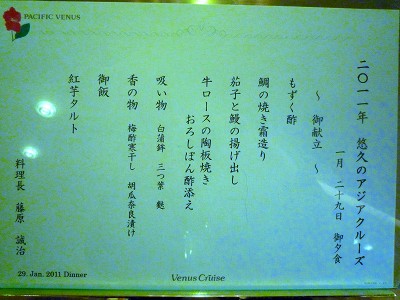 PACIFIC VENUS
二〇一一年 悠久のアジアクルーズ
一月 二十九日 御夕食
～ 御献立 ～
もずく酢
鯛の焼き霜造り
茄子と鰻の揚げ出し
牛ロースの陶板焼き
おろしぽん酢添え
吸い物 白蒲鉾 三つ葉 麩
香の物 梅酢寒干し 胡瓜奈良漬け
御飯
紅芋タルト
料理長 藤原 誠治
29. Jan. 2011 Dinner
Venus Cruise